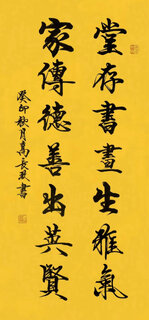 堂存書畫生雅氣
家傳德善出英賢
癸卯秋月高長君書